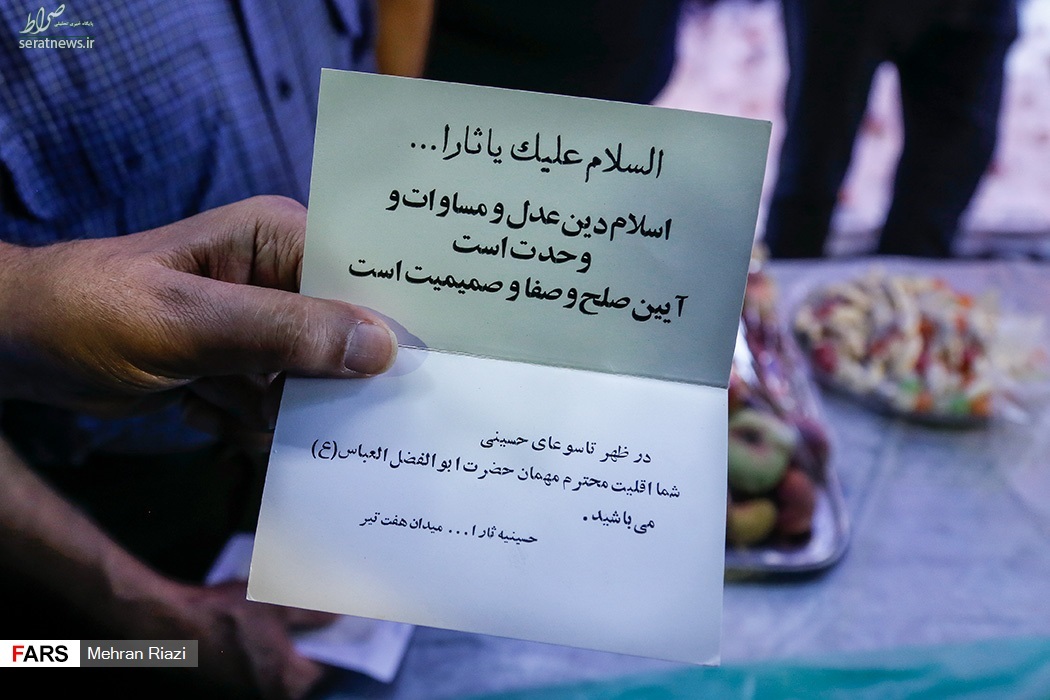 صراط
پایگاه خبری تحلیلی
seratnews.ir
السلام علیك یا ثارا...
اسلام دین عدل و مساوات و
وحدت است
آیین صلح و صفا و صمیمیت است
در ظهر تاسوعای حسینی
شما اقلیت محترم مهمان حضرت ابوالفضل العباس(ع)
می باشید.
حسینیه ثارا... میدان هفت تیر
FARS Mehran Riazi